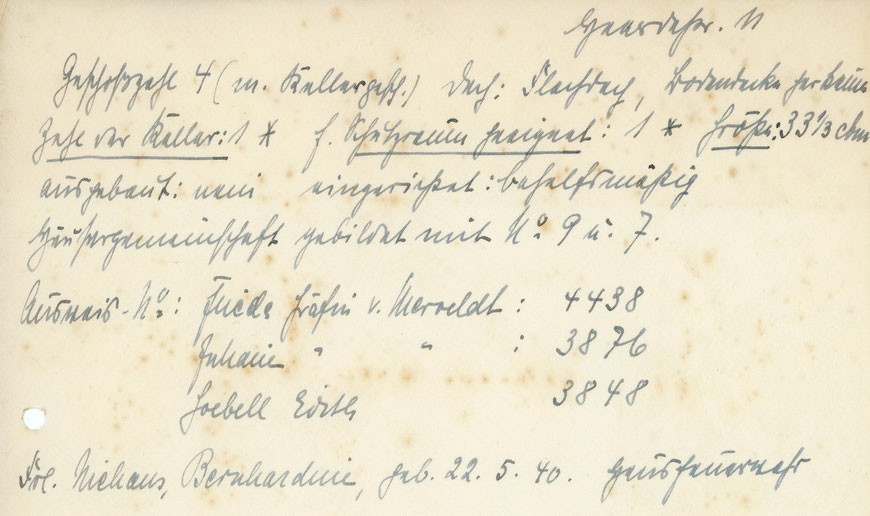 Geschoßzahl 4 (m. Kellergesch.) Dach: Flachdach, Bodendecke
Zahl der Keller: 1 * f. Schutzraum geeignet: 1 * Größe: 33 1/3 cbm
ausgebaut: nein eingerichtet: behelfsmäßig
Häusergemeinschaft gebildet mit No. 9 u. 7.
Ausweis-No.: Frieda Gräfin v. Merveldt: 4438
" " : 3876
Goebell Edith 3848
Frl. Niehaus, Bernhardine, geb. 22. 5. 40. Hausfeuerwehr